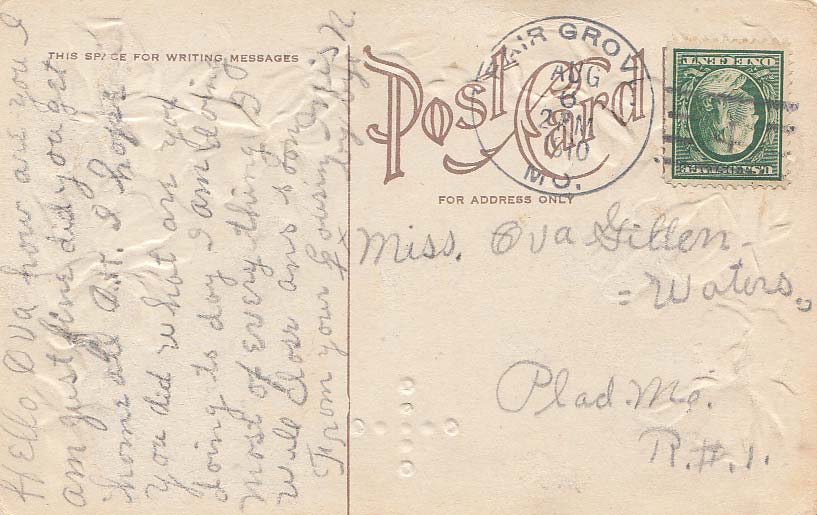 THIS SPACE FOR WRITING MESSAGES
Post Card
FOR ADDRESS ONLY
FAIR GROVE
AUG
6
PM
MO.
ONE CENT
U.S. POSTAGE
Miss. Ova Gillen-
=Waters.
Plad. Mo.
R.#.1.
Hello Ova how are you I
am just fine did you get
home all O.K. I hope
you did what are you
doing to day I am doing
most of every thing I
will Close ans soon
From your Cousin
by by